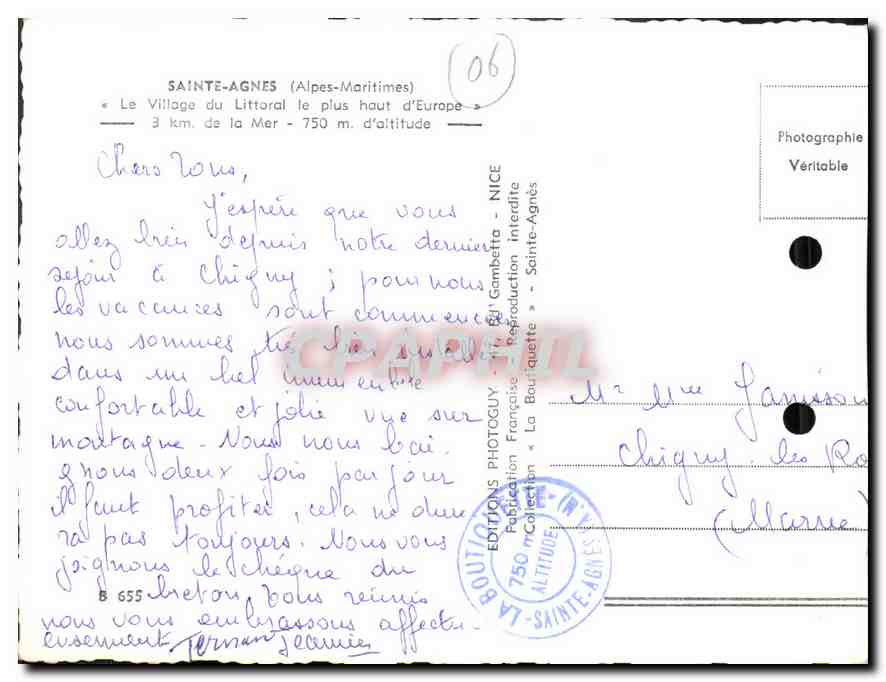 06
SAINTE-AGNES (Alpes-Maritimes)
« Le Village du Littoral le plus haut d'Europe »
3 km. de la Mer - 750 m. d'altitude
Chers Tous,
J'espère que vous
allez bien depuis notre dernier
sejour à Chigny ; pour nous
les vacances sont commencées
nous sommes très bien installés
dans un bel immeuble
confortable et jolie vue sur
montagne. Nous nous bai-
gnons deux fois par jour
il faut profiter, cela ne dure
ra pas toujours. Nous vous
joignons le chèque du
B 655 breton. Tous réunis
nous vous embrassons affectu-
eusement
EDITIONS PHOTOGUY - Bd Gambetta - NICE
Fabrication Française - Reproduction interdite
Collection « La Boutiquette » - Sainte-Agnès
CPAPHIL
LA BOUTIQUETTE - SAINTE-AGNÈS
750 m
ALTITUDE
Photographie
Véritable
Mr Mme
Chigny. les Ro
(Marne)